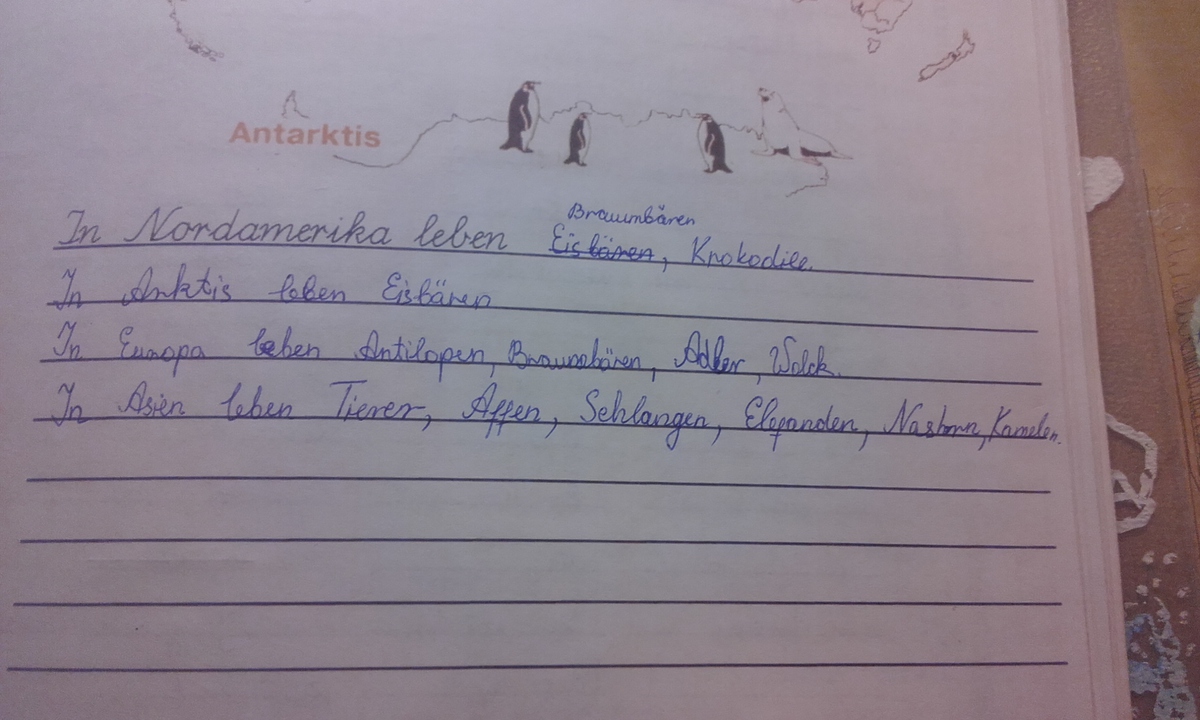 Antarktis
Braunbären
In Nordamerika leben Eisbären, Krokodile.
In Arktis leben Eisbären
In Europa leben Antilopen, Braunbären, Adler, Wolck.
In Asien leben Tierer, Affen, Schlangen, Elefanden, Nashorn, Kamelen.